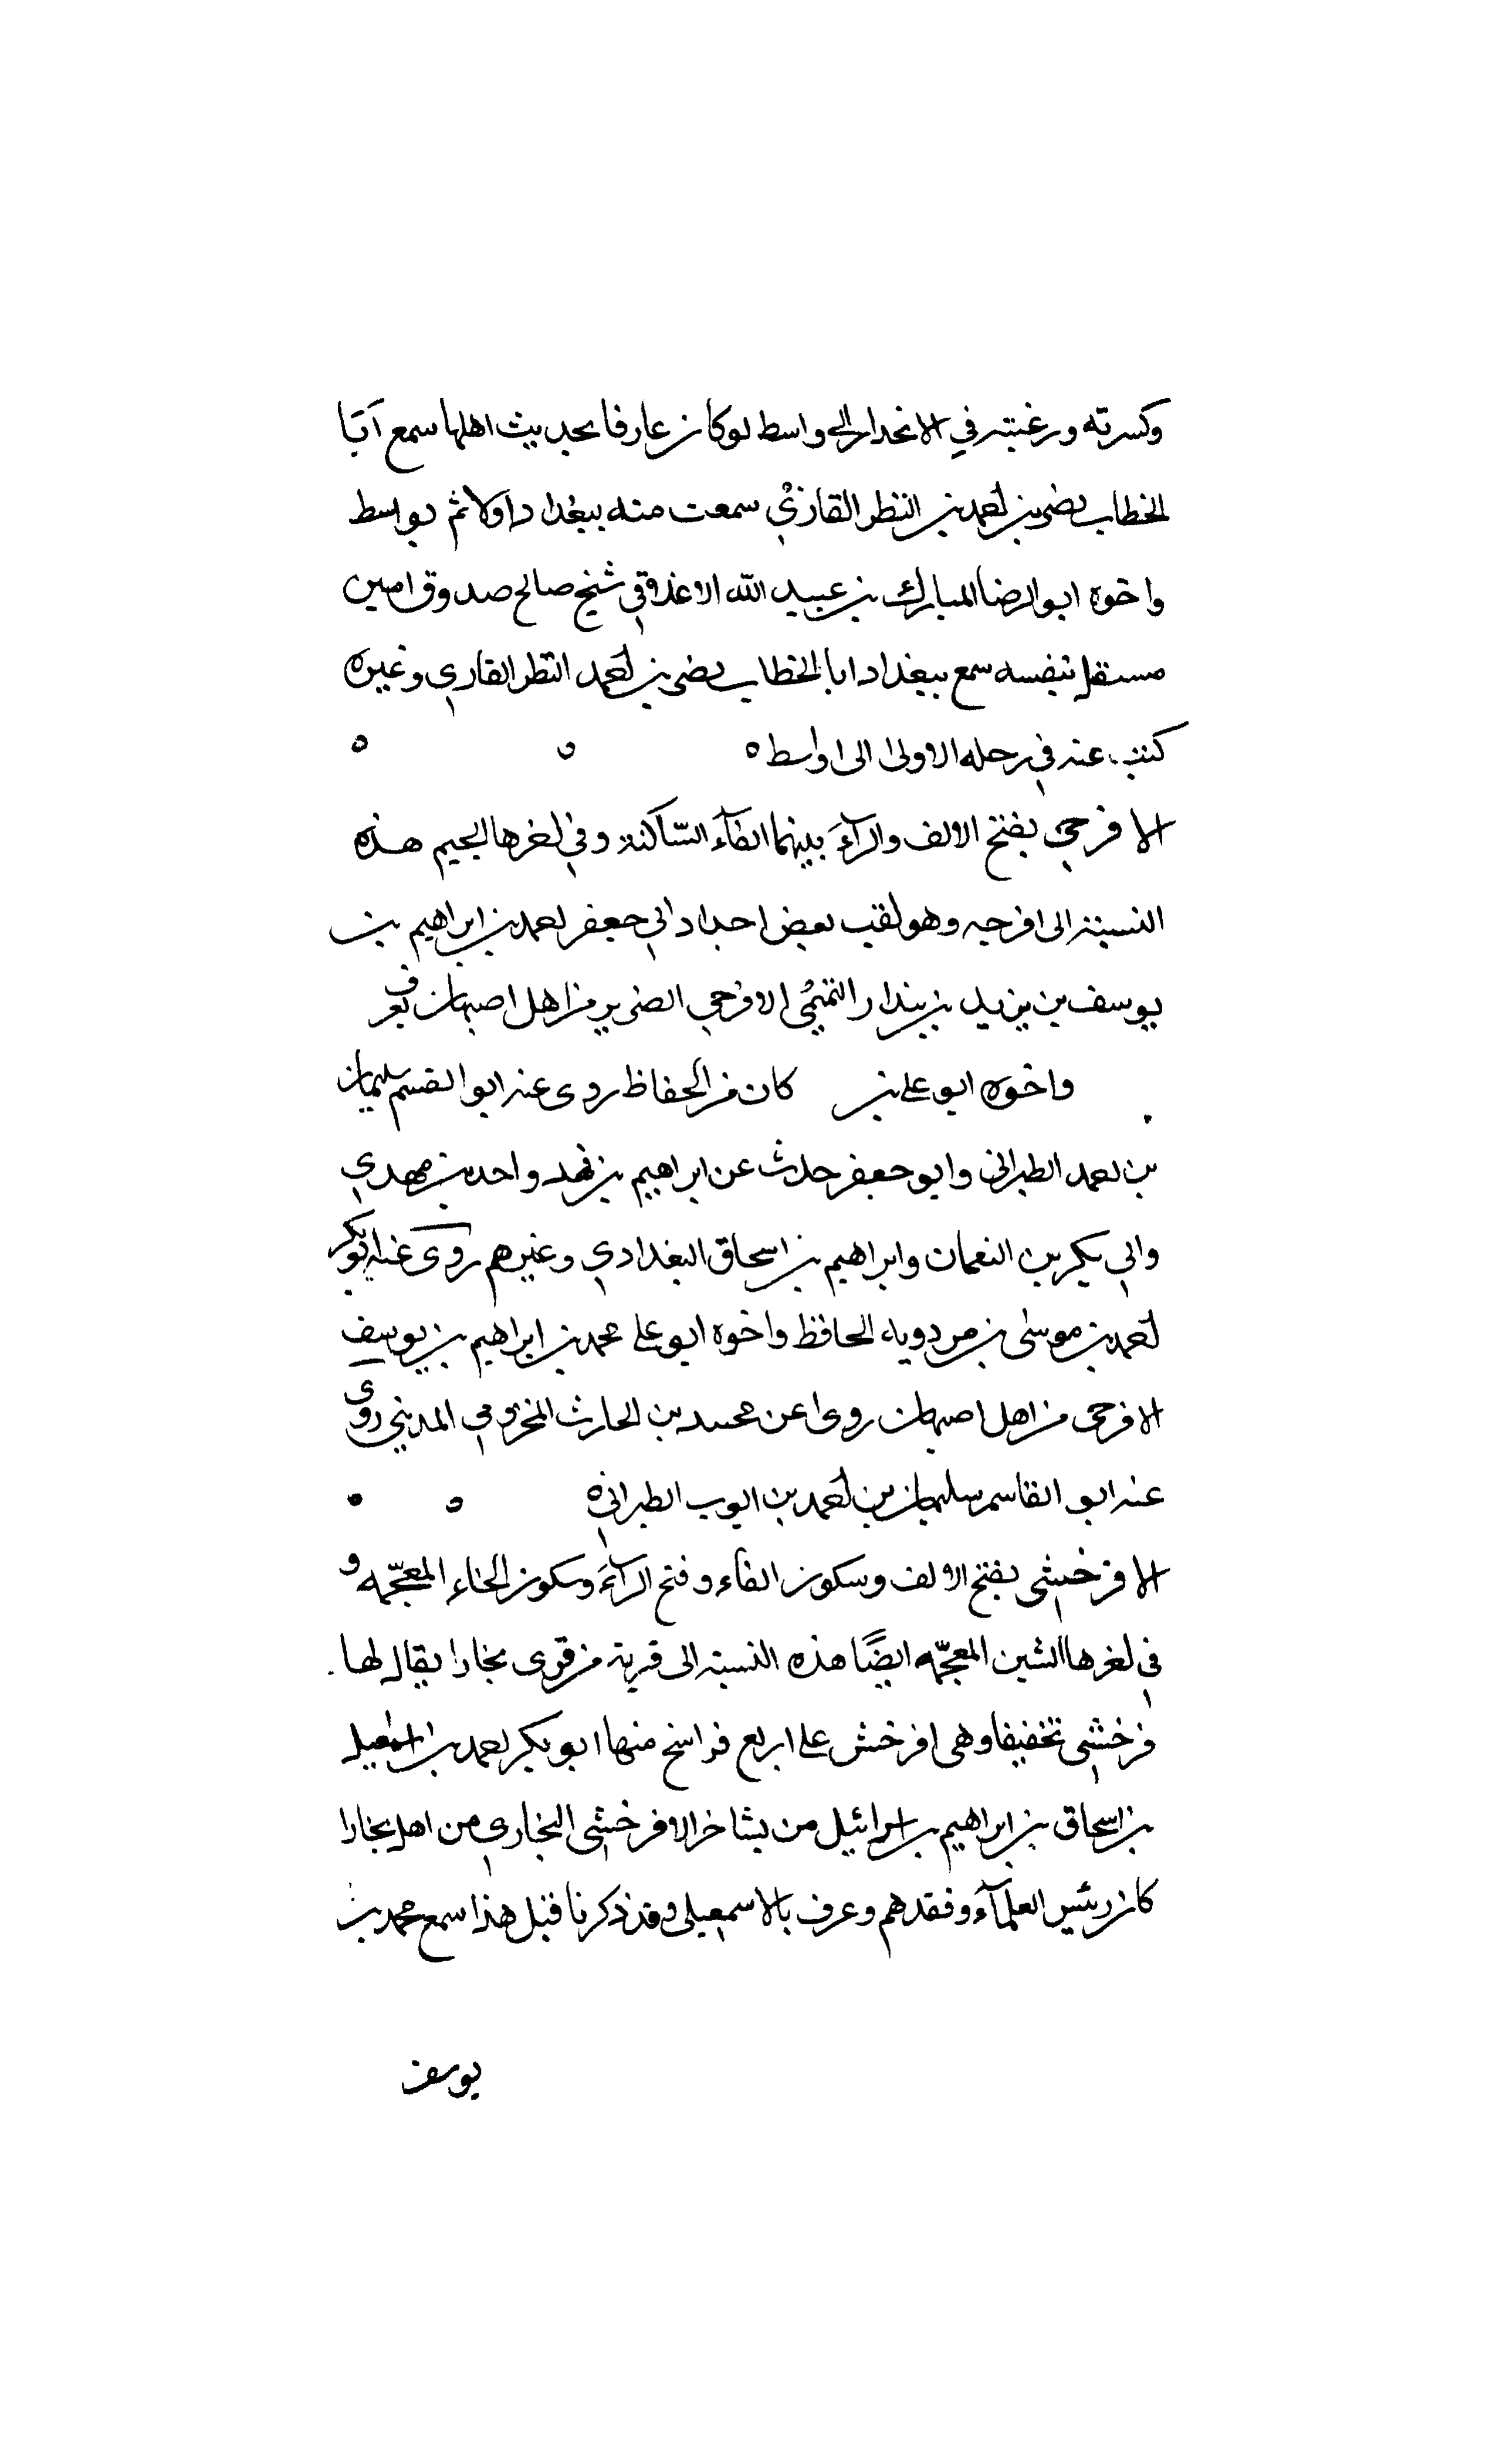 وكسرته ورغبته في الانحدار الى واسط لو كان عارفا بحديث اهلها سمع أبا
الخطاب نصر بن احمد بن النظر القارئ سمعت منه ببغداد اولا ثم بواسط
واخوه ابو الرضا المبارك بن عبيد الله الاغلاقي شيخ صالح صدوق امين
مستقل بنفسه سمع ببغداد ابا الخطاب نصر بن احمد النظر القاري وغيره
كتبت عنه في رحله الاولى الى اواسط ه
الافرجي بفتح الالف والرآء بينهما الفآء السّاكنة وفي اخرها الجيم هذه
النسبة الى افرجه وهو لقب بعض اجداد ابي جعفر احمد بن ابراهيم بن
يوسف بن يزيد بن بندار التيمي الافرجي الضرير من اهل اصبهان يعرف
واخوه ابو علي بن كان من الحفاظ روى عنه ابو القسم سليمان
بن احمد الطبراني وابو جعفر حدث عن ابراهيم بن فهد واحمد بن مهدي
وابي بكر بن النعمان وابراهيم بن اسحاق البغدادي وغيرهم روى عنه ابو بكر
احمد بن موسى بن مردويه الحافظ واخوه ابو على محمد بن ابراهيم بن يوسف
الافرجى من اهل اصبهان روى عن محمد بن الحارث المخزومي المديني روى
عنه ابو القاسم سليمان بن احمد بن ايوب الطبراني ه
الافرخشى بفتح الالف وسكون الفاء وفتح الرآء وسكون الخاء المعجّمه و
في اخرها الشين المعجّمه ايضًا هذه النسبة الى قرية من قرى بخارا يقال لها
فرخشى تخفيفا وهى افرخش على اربع فراسخ منها ابو بكر احمد بن اسمعيل
بن اسحاق بن ابراهيم بن اسرائيل من يشاخر الافرخشى البخارى من اهل بخارا
كان رئيس العلمآء وفقدهم وعرف بالاسمعيلى وقد ذكرنا قبل هذا سمع محمد بن
يوسف